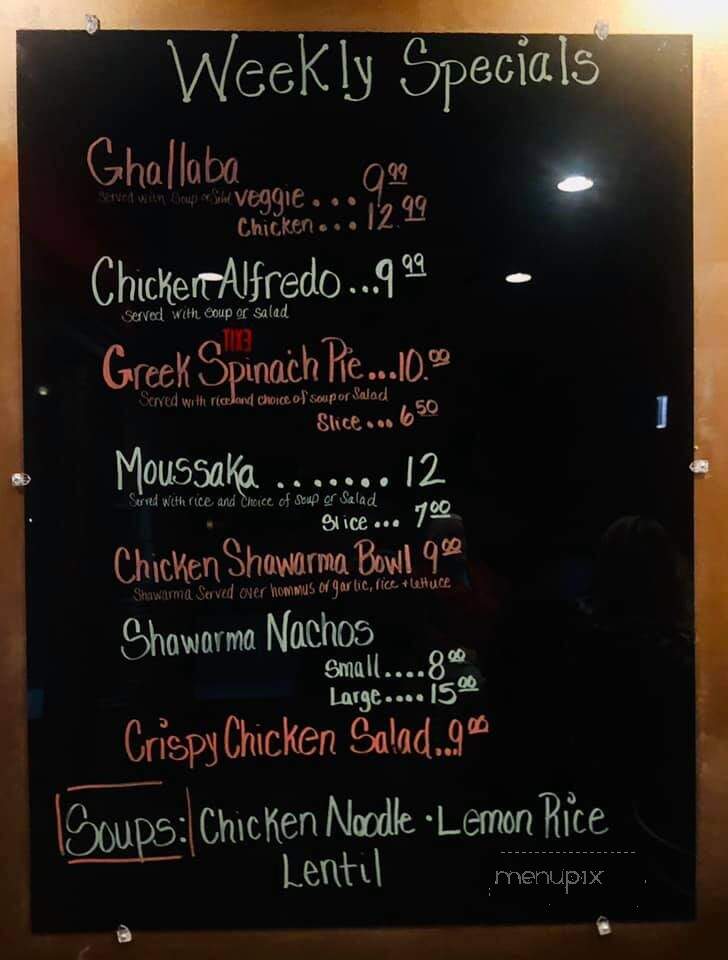 Weekly Specials
Ghallaba
Served with Soup or Salad Veggie... 9.99
Chicken... 12.99
Chicken Alfredo...9.99
Served with soup or salad
EXIT
Greek Spinach Pie...10.00
Served with rice and choice of soup or Salad
Slice... 6.50
Moussaka ........ 12
Served with rice and choice of soup or Salad
Slice... 7.00
Chicken Shawarma Bowl 9.00
Shawarma Served over hommus or garlic, rice + lettuce
Shawarma Nachos
Small....8.00
Large....15.00
Crispy Chicken Salad...9.00
Soups: Chicken Noodle · Lemon Rice
Lentil
menupix